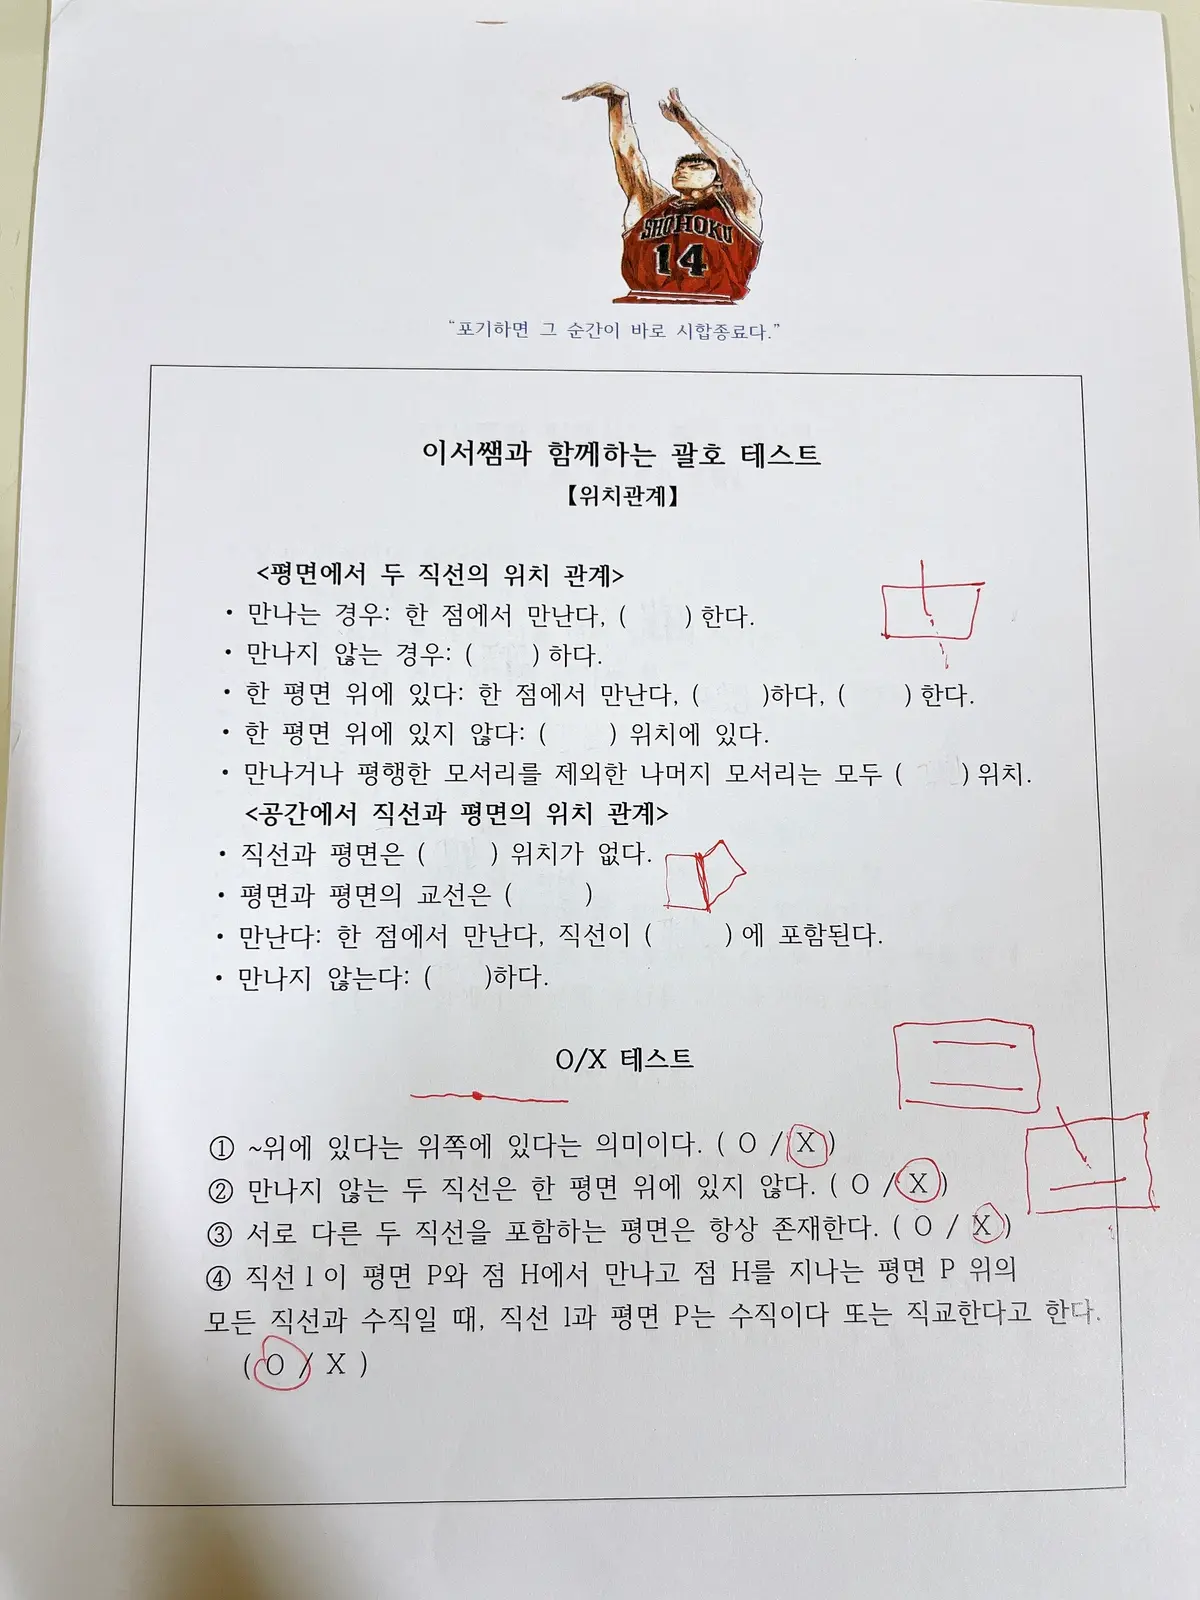 SHOHOKU
14
"포기하면 그 순간이 바로 시합종료다."
이서쌤과 함께하는 괄호 테스트
【위치관계】
<평면에서 두 직선의 위치 관계>
• 만나는 경우: 한 점에서 만난다, ( ) 한다.
• 만나지 않는 경우: ( ) 하다.
• 한 평면 위에 있다: 한 점에서 만난다, ( )하다, ( ) 한다.
• 한 평면 위에 있지 않다: ( ) 위치에 있다.
• 만나거나 평행한 모서리를 제외한 나머지 모서리는 모두 ( ) 위치.
<공간에서 직선과 평면의 위치 관계>
• 직선과 평면은 ( ) 위치가 없다.
• 평면과 평면의 교선은 ( )
• 만난다: 한 점에서 만난다, 직선이 ( ) 에 포함된다.
• 만나지 않는다: ( )하다.
O/X 테스트
① ~위에 있다는 위쪽에 있다는 의미이다. ( O / X )
② 만나지 않는 두 직선은 한 평면 위에 있지 않다. ( O / X )
③ 서로 다른 두 직선을 포함하는 평면은 항상 존재한다. ( O / X )
④ 직선 l 이 평면 P와 점 H에서 만나고 점 H를 지나는 평면 P 위의
모든 직선과 수직일 때, 직선 l과 평면 P는 수직이다 또는 직교한다고 한다.
( O / X )